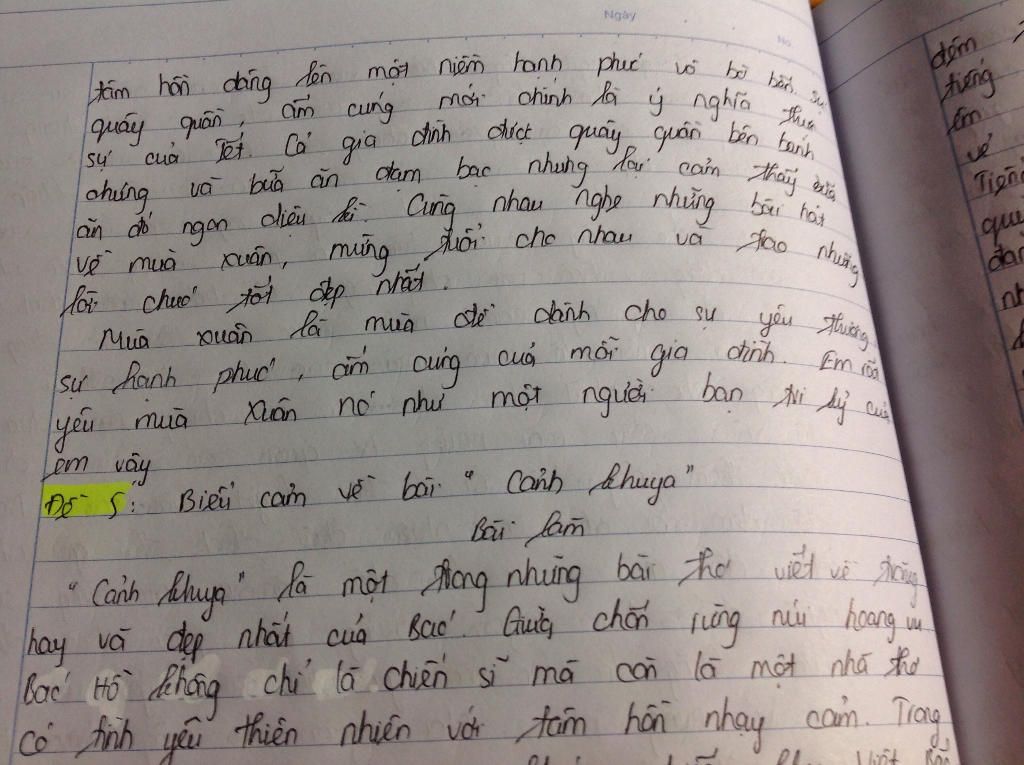 Ngày
No.
tâm hồn dâng lên một niềm hạnh phúc vô bờ bến. Sự
quây quần, ấm cúng mới chính là ý nghĩa thực
sự của Tết. Cả gia đình được quây quần bên bánh
chưng và bữa ăn đạm bạc nhưng lại cảm thấy bữa
ăn đó ngon diệu kì. Cùng nhau nghe những bài hát
về mùa xuân, mừng tuổi cho nhau và trao những
lời chúc tốt đẹp nhất.
Mùa xuân là mùa để dành cho sự yêu thương
sự hạnh phúc, ấm cúng của mỗi gia đình. Em rất
yêu mùa xuân nó như một người bạn tri kỷ của
em vậy
Đề 5: Biểu cảm về bài "Cảnh khuya"
Bài làm
"Cảnh khuya" là một trong những bài thơ viết về trăng
hay và đẹp nhất của Bác. Giữa chốn rừng núi hoang vu
Bác Hồ không chỉ là chiến sĩ mà còn là một nhà thơ
có tình yêu thiên nhiên với tâm hồn nhạy cảm. Trong
đêm
tiếng
ấm
về
Tiếng